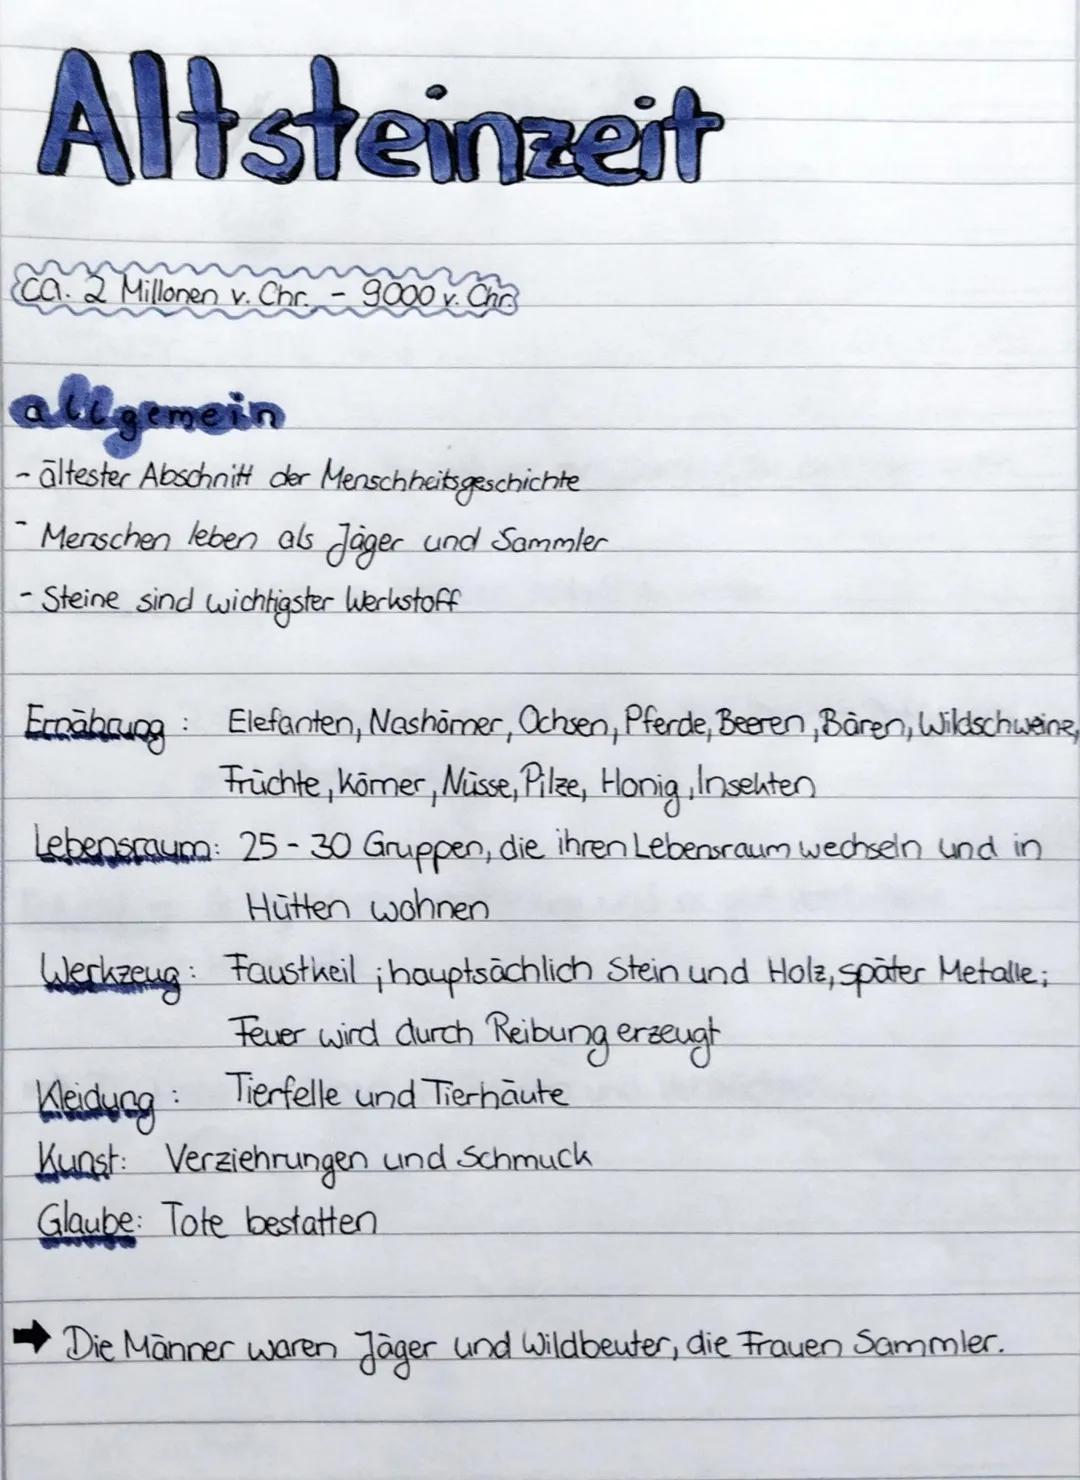 Altsteinzeit
ca. 2 Millonen v. Chr. - 9000 v. Chr.
allgemein
- ältester Abschnitt der Menschheitsgeschichte
- Menschen leben als Jäger und Sammler
- Steine sind wichtigster Werkstoff
Ernährung : Elefanten, Nashörner, Ochsen, Pferde, Beeren, Bären, Wildschweine,
Früchte, Körner, Nüsse, Pilze, Honig, Insekten
Lebensraum: 25 - 30 Gruppen, die ihren Lebensraum wechseln und in
Hütten wohnen
Werkzeug: Faustkeil ; hauptsächlich Stein und Holz, später Metalle;
Feuer wird durch Reibung erzeugt
Kleidung : Tierfelle und Tierhäute
Kunst: Verziehrungen und Schmuck
Glaube: Tote bestatten
➡ Die Männer waren Jäger und Wildbeuter, die Frauen Sammler.